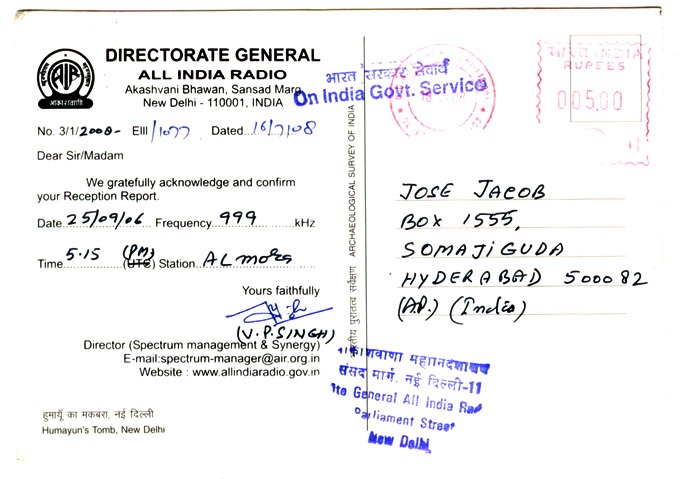 DIRECTORATE GENERAL
ALL INDIA RADIO
Akashvani Bhawan, Sansad Marg,
New Delhi - 110001, INDIA
AIR
आकाशवाणी
No. 3/1/2008- EIII/1077 Dated 16/7/08
Dear Sir/Madam
We gratefully acknowledge and confirm
your Reception Report.
Date 25/09/06 Frequency 999 kHz
Time 5.15 (PM) (UTC) Station ALmora
Yours faithfully
(V.P.SINGH)
Director (Spectrum management & Synergy)
E-mail:spectrum-manager@air.org.in
Website : www.allindiaradio.gov.in
हुमायूँ का मकबरा, नई दिल्ली
Humayun's Tomb, New Delhi
भारतीय पुरातत्व सर्वेक्षण ARCHAEOLOGICAL SURVEY OF INDIA
भारत सरकार सेवार्थ
On India Govt. Service
भारत INDIA
RUPEES
005.00
JOSE JACOB
BOX 1555,
SOMAJIGUDA
HYDERABAD 500082
(A.P.) (India)
संसद मार्ग, नई दिल्ली-11
te General All India Rad
Parliament Street
New Delhi